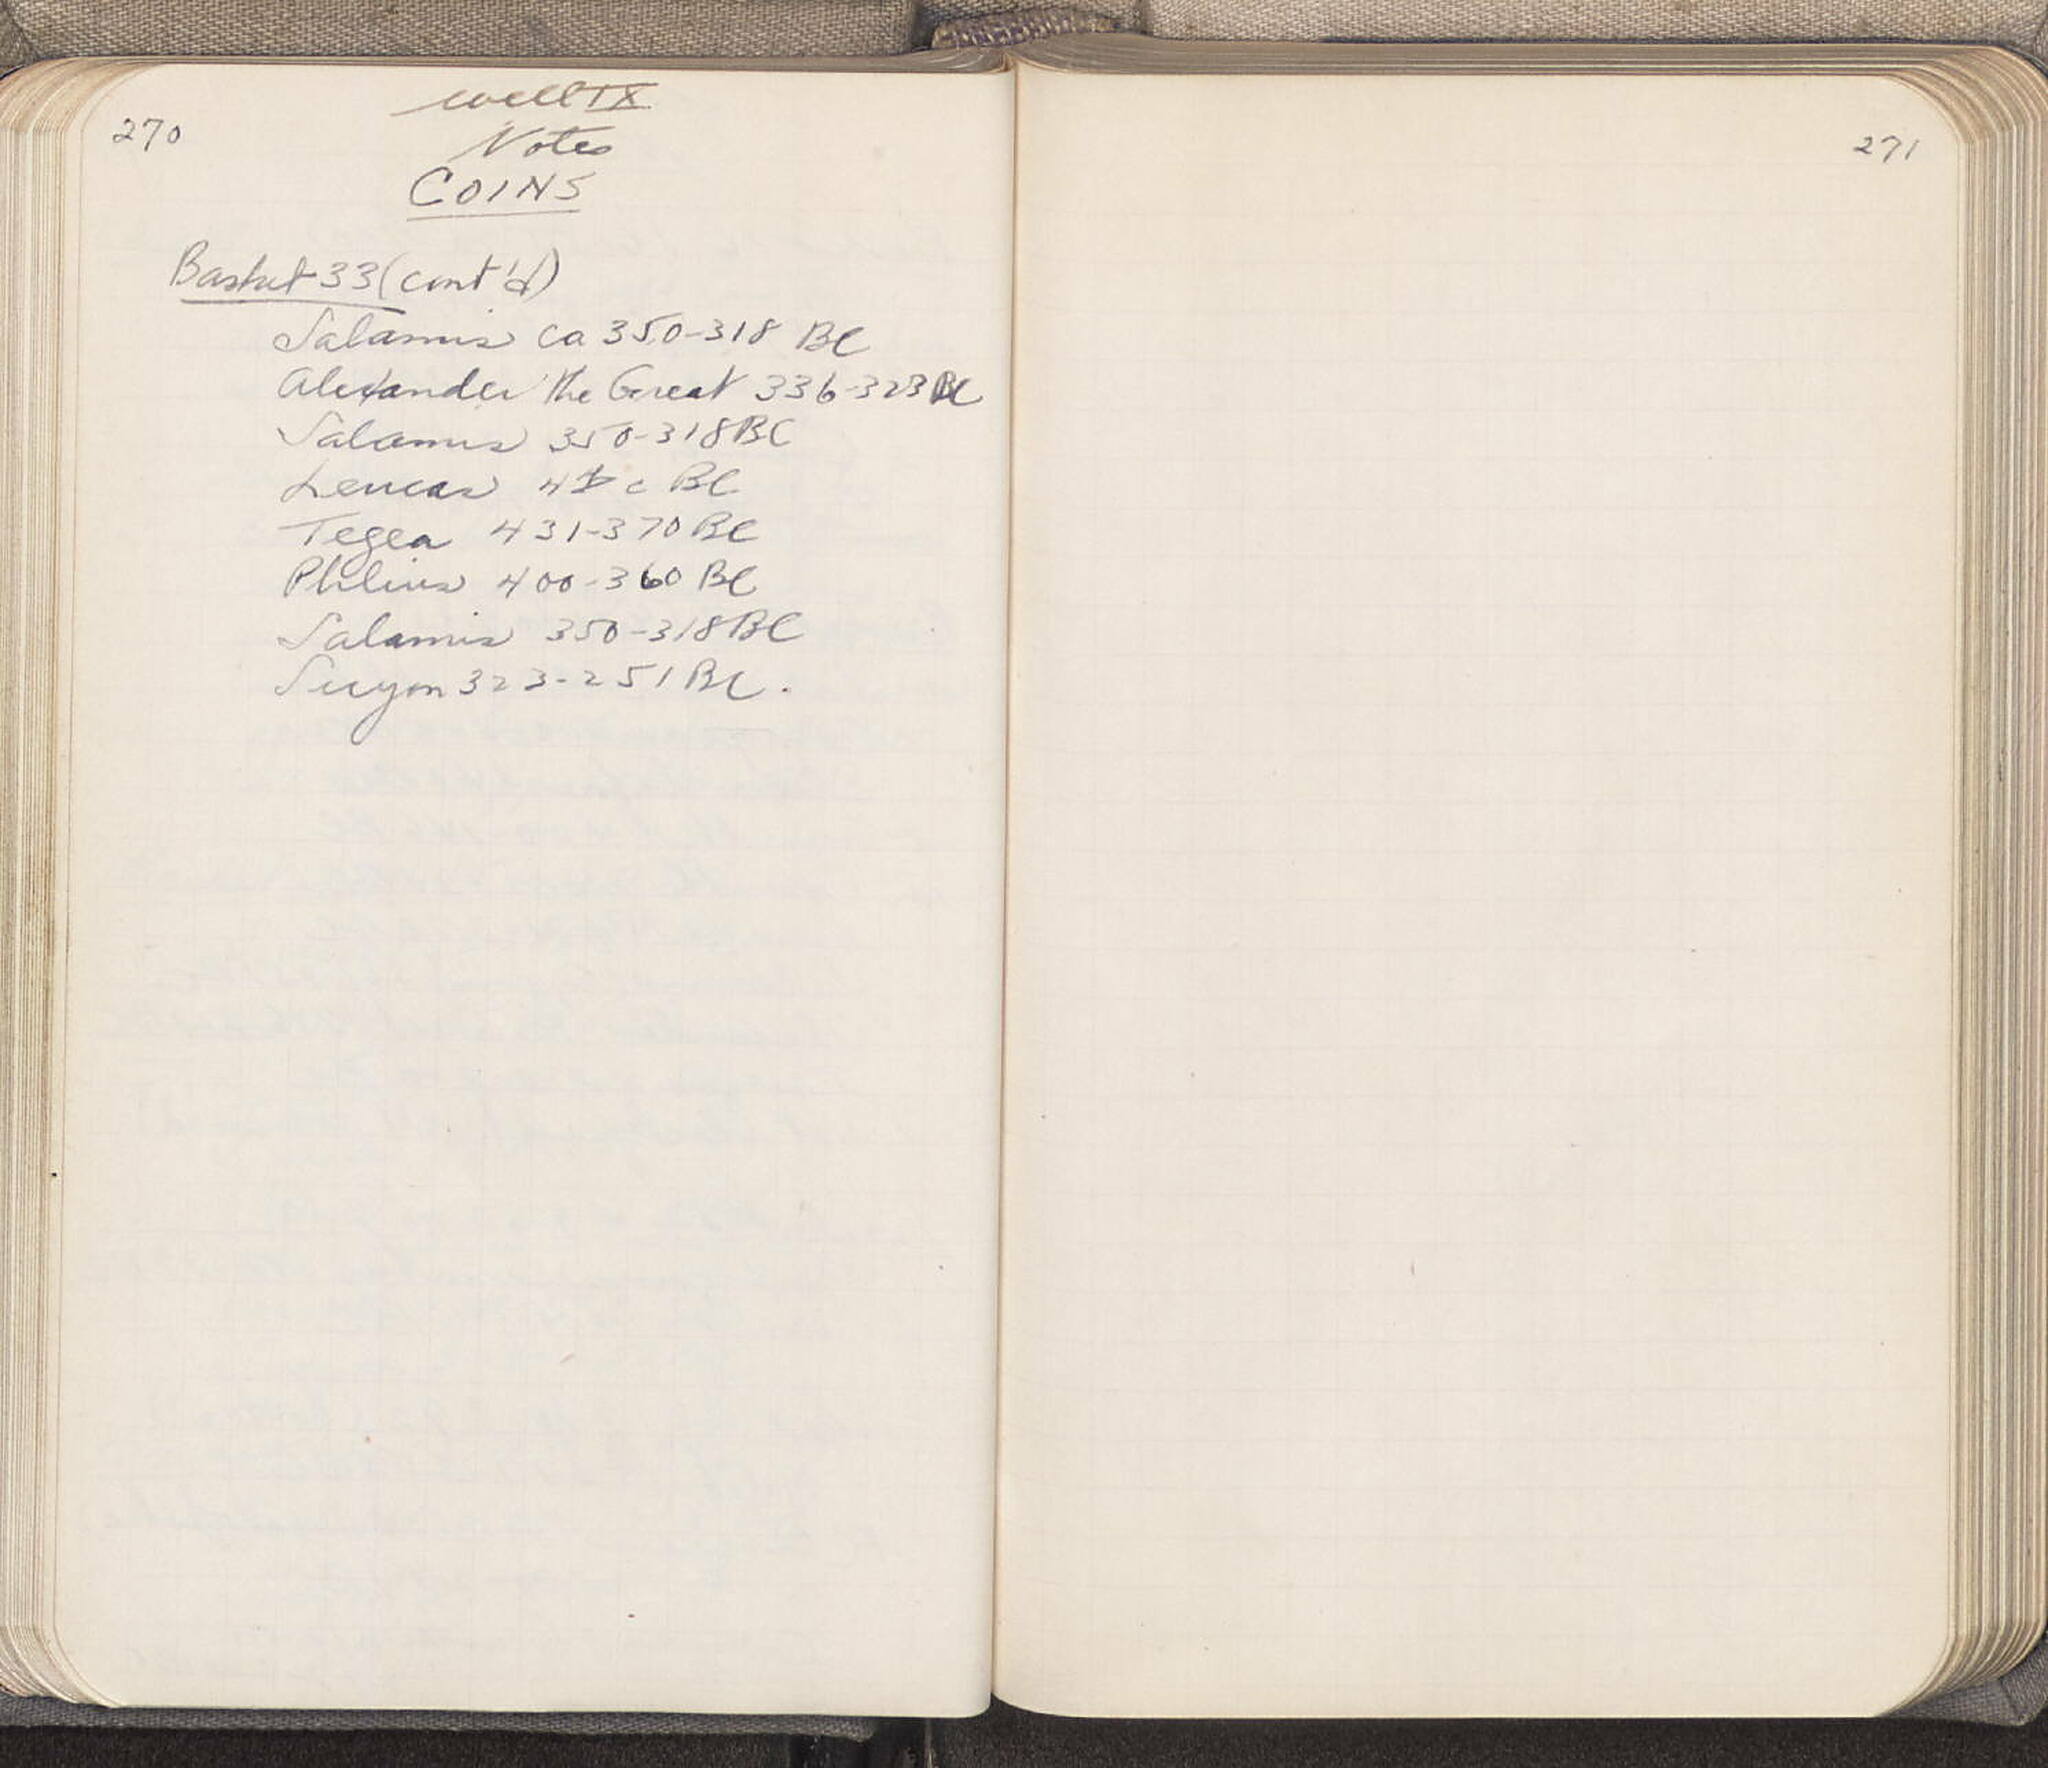 270
Well IX
Notes
COINS
Basket 33 (cont'd)
Salamis ca 350-318 BC
Alexander the Great 336-323 BC
Salamis 350-318 BC
Leucas 4th c BC
Tegea 431-370 BC
Phlius 400-360 BC
Salamis 350-318 BC
Sicyon 323-251 BC.
271